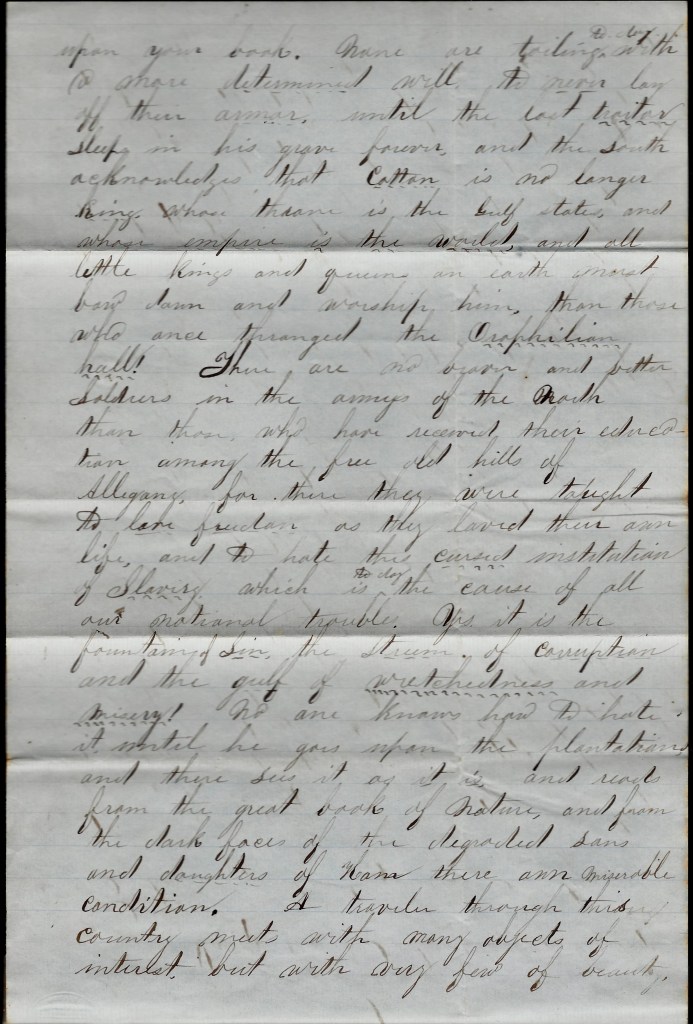 to day
upon your book. None are toiling with
a more determined will to never lay
off their armor, until the last traitor
sleeps in his grave forever, and the South
acknowledges that Cotton is no longer
king whose throne is the Gulf states, and
whose empire is the world, and all
little kings and queens on earth must
bow down and worship him, than those
who once thronged the Orophilian
hall! There are no braver and better
soldiers in the armys of the North
than those, who have received their educa-
tion among the free old hills of
Allegany, for there they were taught
to love freedom as they loved their own
life, and to hate this cursed institution
of Slavery which is to day the cause of all
our national trouble. Yes it is the
fountain of Sin, the stream of corruption
and the gulf of wretchedness and
misery! No one knows how to hate
it until he goes upon the plantations
and there sees it as it is, and reads
from the great book of Nature, and from
the dark faces of the degraded sons
and daughters of Ham there own miserable
condition. A traveler through this
country meets with many objects of
interest, but with very few of beauty,